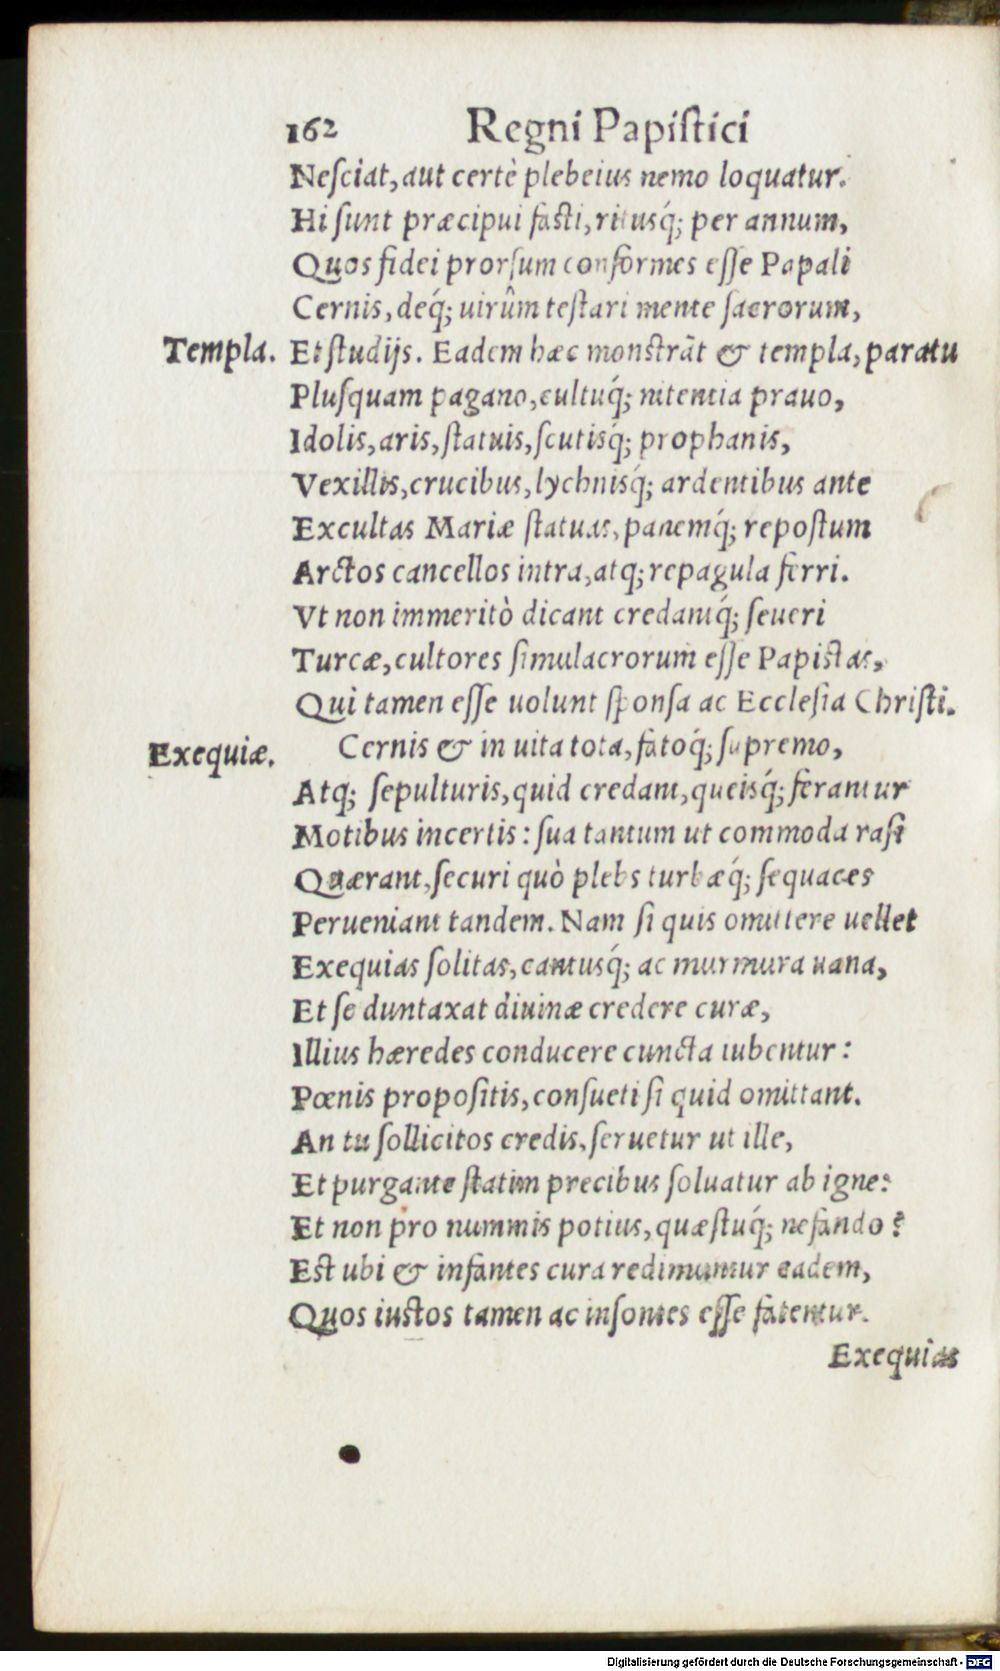 162 Regni Papiſtici
Neſciat, aut certè plebeius nemo loquatur.
Hi ſunt præcipui faſti, ritusq́; per annum,
Quos fidei prorſum conformes eſſe Papali
Cernis, deq́; uirûm teſtari mente ſacrorum,
Templa. Et ſtudijs. Eadem hæc monſtrāt & templa, paratu
Pluſquam pagano, cultuq́; nitentia prauo,
Idolis, aris, ſtatuis, ſcutisq́; prophanis,
Vexillis, crucibus, lychnisq́; ardentibus ante
Excultas Mariæ ſtatuas, panemq́; repoſtum
Arctos cancellos intra, atq; repagula ferri.
Vt non immeritò dicant credantq́; ſeueri
Turcæ, cultores ſimulacrorum eſſe Papiſtas,
Qui tamen eſſe uolunt ſponſa ac Eccleſia Chriſti.
Exequiæ. Cernis & in uita tota, fatoq́; ſupremo,
Atq; ſepulturis, quid credant, queisq́; ferantur
Motibus incertis: ſua tantum ut commoda raſi
Quærant, ſecuri quò plebs turbæq́; ſequaces
Perueniant tandem. Nam ſi quis omittere uellet
Exequias ſolitas, cantusq́; ac murmura uana,
Et ſe duntaxat diuinæ credere curæ,
Illius hæredes conducere cuncta iubentur:
Pœnis propoſitis, conſueti ſi quid omittant.
An tu ſollicitos credis, ſeruetur ut ille,
Et purgante ſtatim precibus ſoluatur ab igne:
Et non pro nummis potius, quæſtuq́; nefando?
Eſt ubi & infantes cura redimuntur eadem,
Quos iuſtos tamen ac inſontes eſſe fatentur.
Exequias
Digitalisierung gefördert durch die Deutsche Forschungsgemeinschaft - DFG